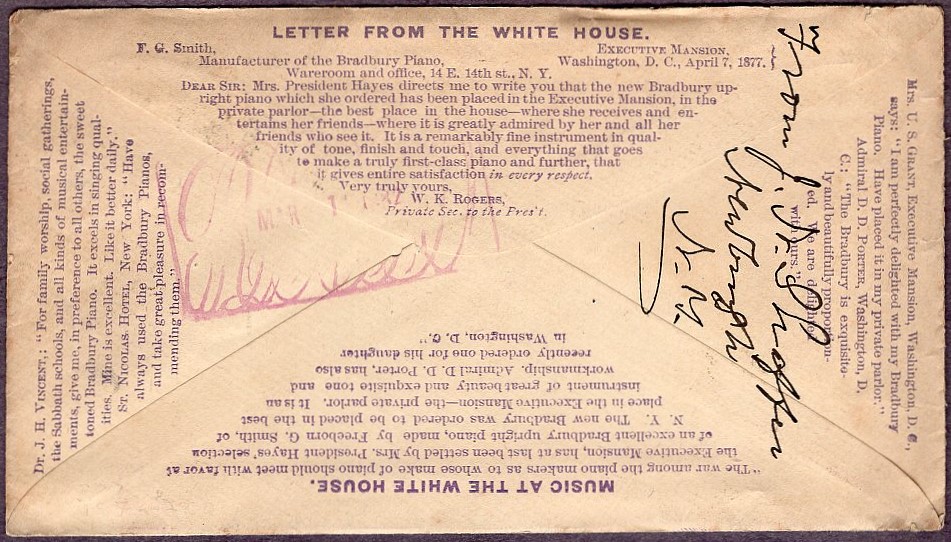 LETTER FROM THE WHITE HOUSE.
F. G. Smith,
Manufacturer of the Bradbury Piano,
Wareroom and office, 14 E. 14th st., N. Y.
EXECUTIVE MANSION,
Washington, D. C., April 7, 1877.
DEAR SIR: Mrs. President Hayes directs me to write you that the new Bradbury up-
right piano which she ordered has been placed in the Executive Mansion, in the
private parlor—the best place in the house—where she receives and en-
tertains her friends—where it is greatly admired by her and all her
friends who see it. It is a remarkably fine instrument in qual-
ity of tone, finish and touch, and everything that goes
to make a truly first-class piano and further, that
it gives entire satisfaction in every respect.
Very truly yours,
W. K. ROGERS,
Private Sec. to the Pres't.
MAR
Mrs. U. S. GRANT, Executive Mansion, Washington, D. C.,
says: "I am perfectly delighted with my Bradbury
Piano. Have placed it in my private parlor."
Admiral D. D. PORTER, Washington, D.
C.: "The Bradbury is exquisite-
ly and beautifully proportion-
ed. We are delighted
with ours."
From J.
Newburgh
N. Y.
MUSIC AT THE WHITE HOUSE.
"The war among the piano makers as to whose make of piano should meet with favor at
the Executive Mansion, has at last been settled by Mrs. President Hayes' selection
of an excellent Bradbury upright piano, made by Freeborn G. Smith, of
N. Y. The new Bradbury was ordered to be placed in the best
place in the Executive Mansion—the private parlor. It is an
instrument of great beauty and exquisite tone and
workmanship. Admiral D. D. Porter, has also
recently ordered one for his daughter
in Washington, D. C."
Dr. J. H. VINCENT.: "For family worship, social gatherings,
the Sabbath schools, and all kinds of musical entertain-
ments, give me, in preference to all others, the sweet
toned Bradbury Piano. It excels in singing qual-
ities. Mine is excellent. Like it better daily."
ST. NICOLAS HOTEL, New York: "Have
always used the Bradbury Pianos,
and take great pleasure in recom-
mending them."